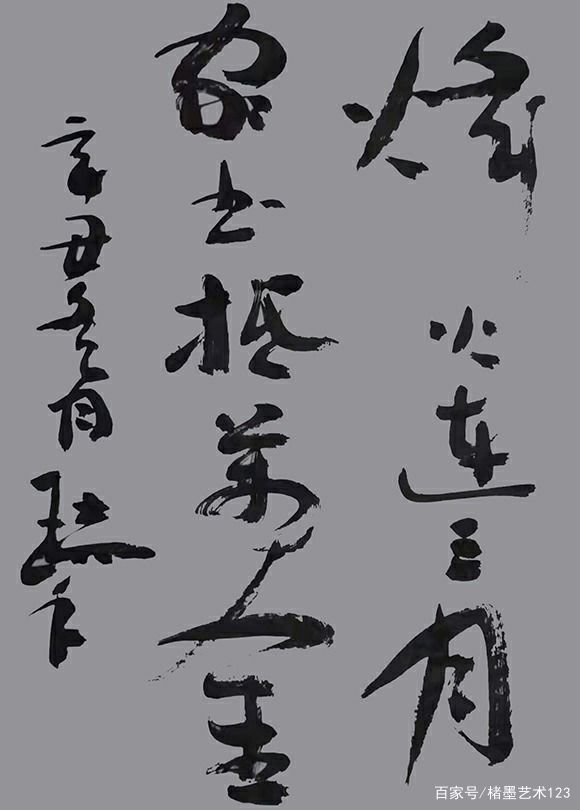 烽火連三月
家书抵萬金
辛丑冬月
百家号/楮墨艺术123